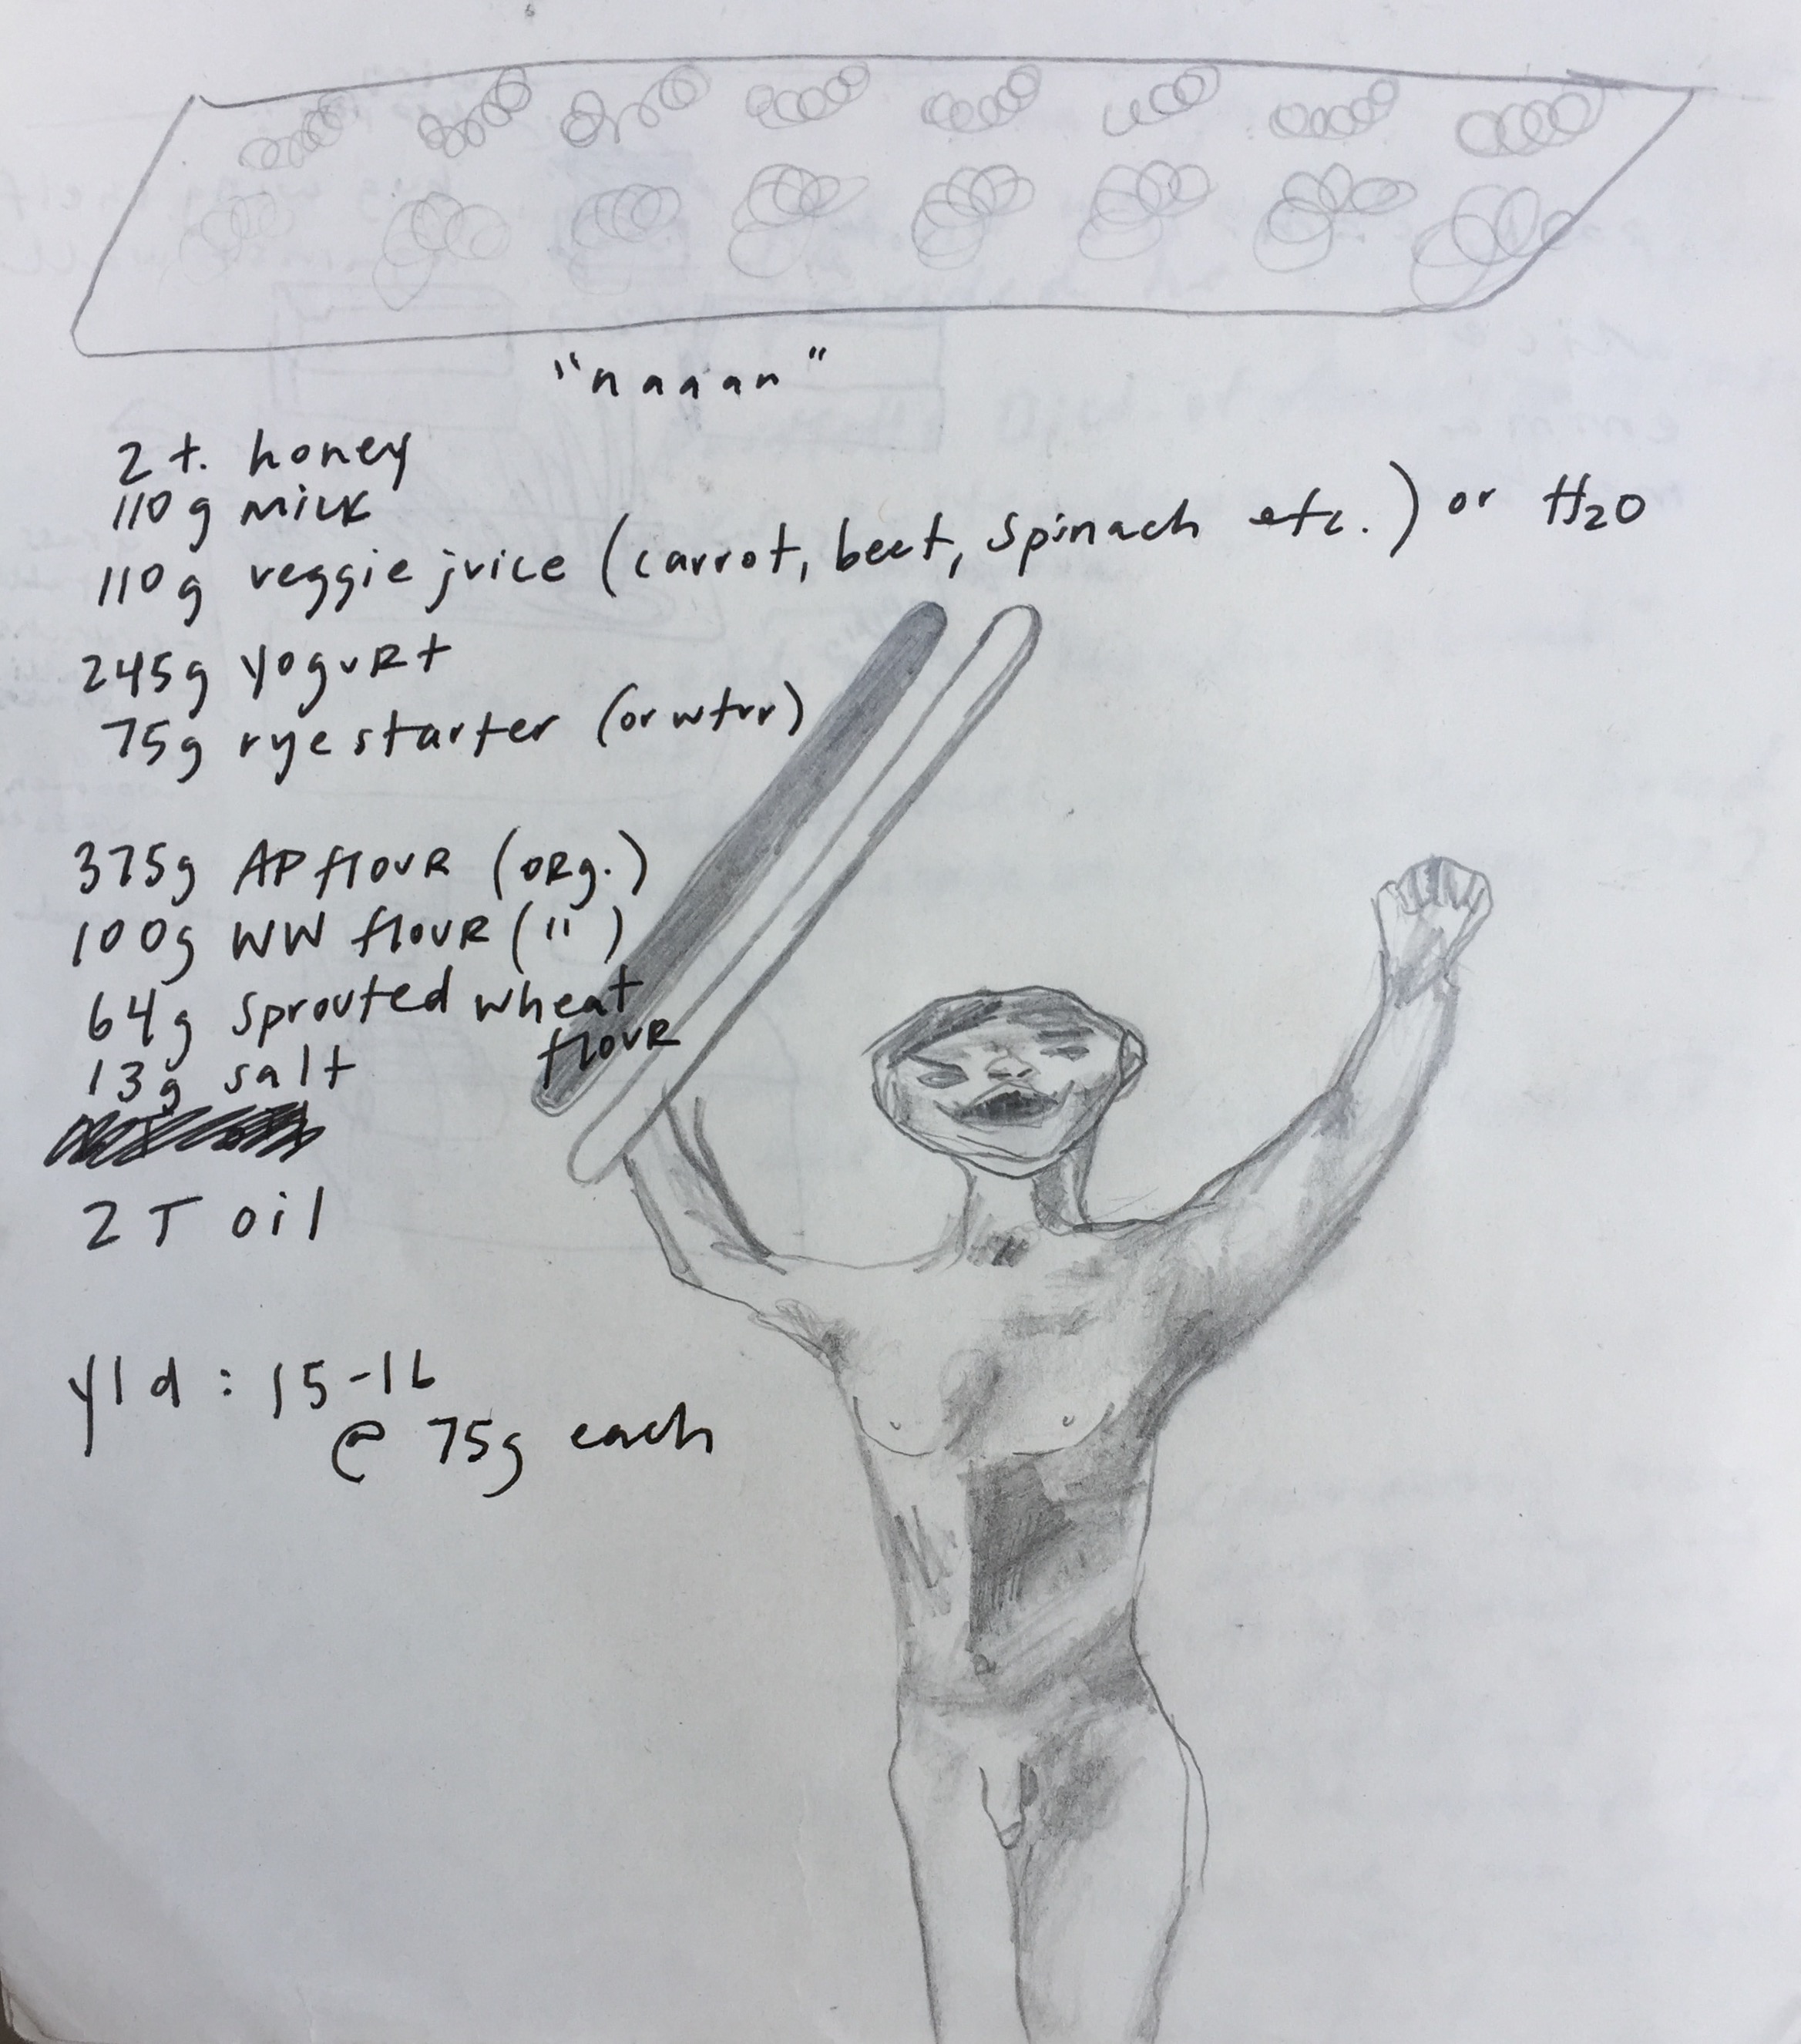 "naaan"
2 t. honey
110g milk
110g veggie juice (carrot, beet, spinach etc.) or H2O
245g yoguRt
75g rye starter (or wtrr)
375g AP flouR (oRg.)
100g WW flouR (")
64g sprouted wheat
flouR
13g salt
2 T oil
yld: 15-16
@ 75g each